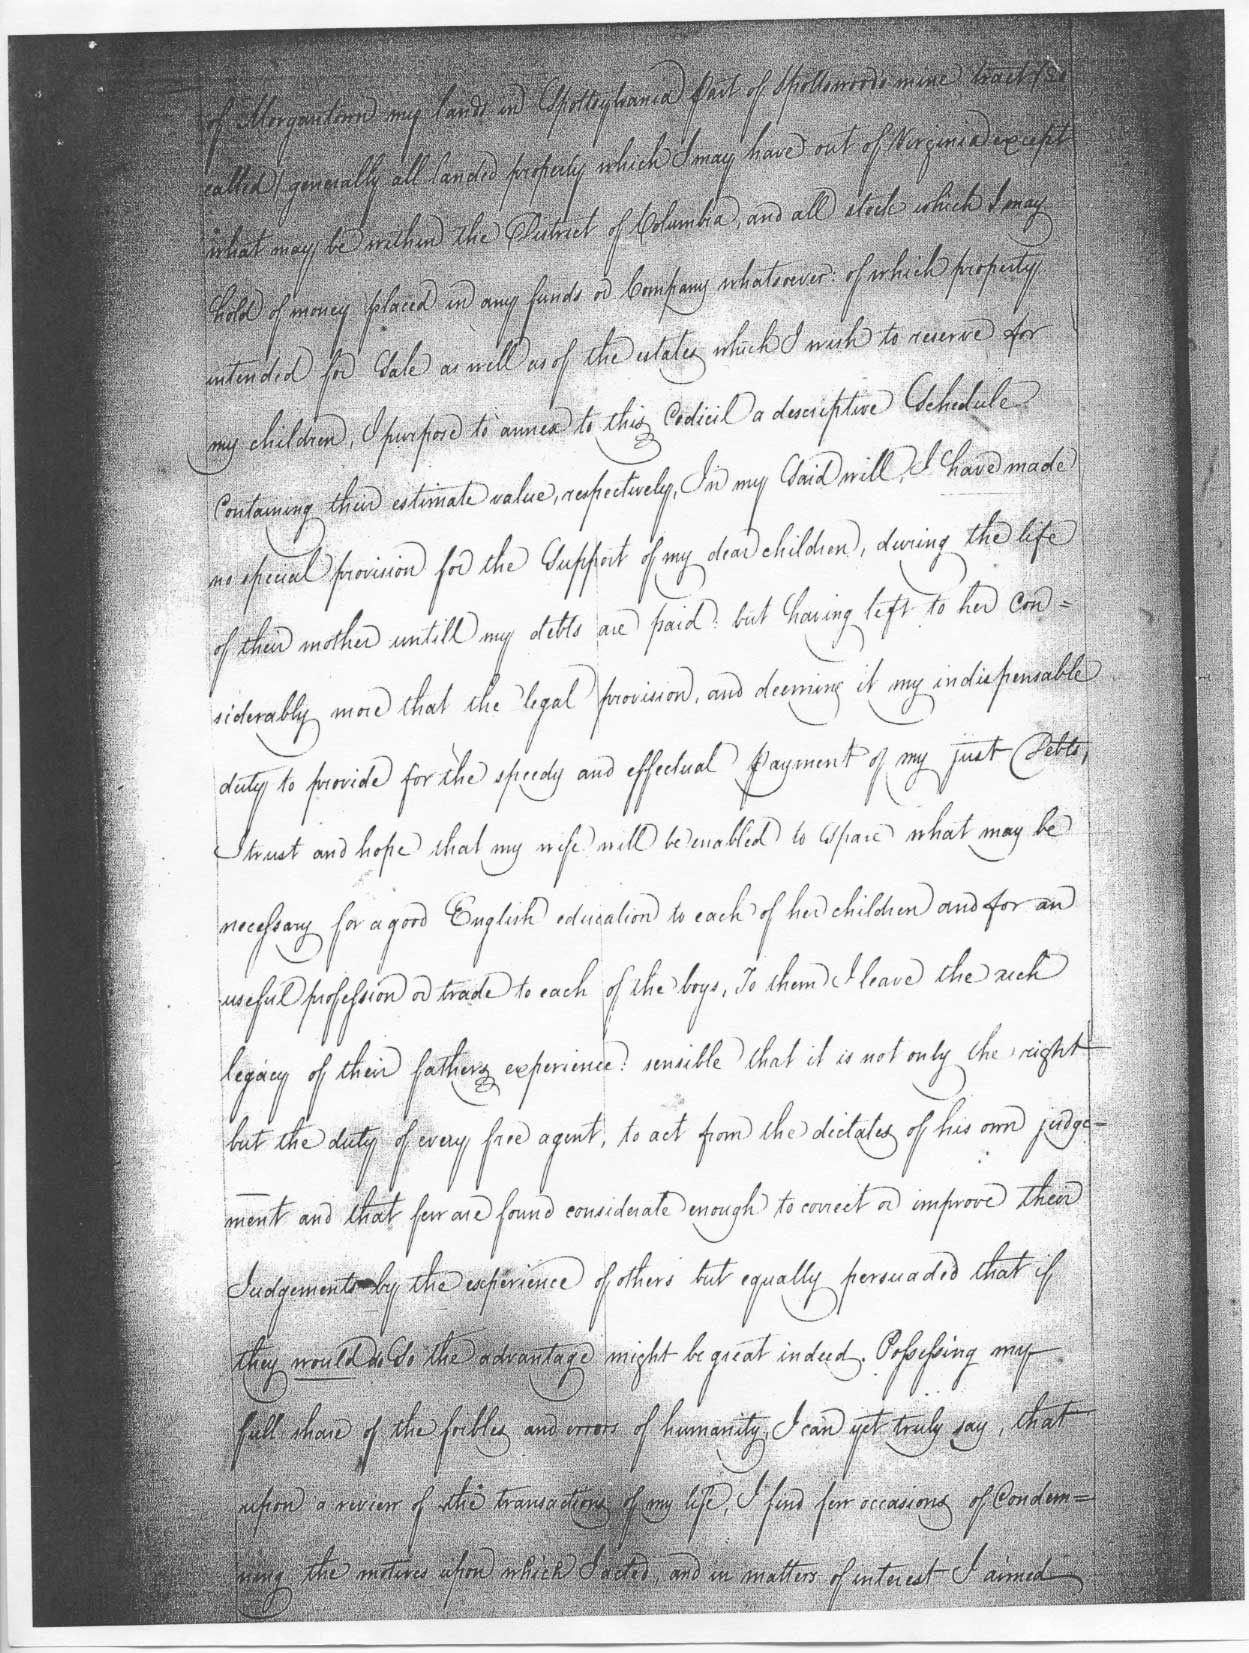 of Morgantown my lands in Spottsylvania part of Spottswoods mine tract (so
called) generally all landed property which I may have out of Virginia except
what may be within the District of Columbia, and all stock which I may
hold of money placed in any funds or Company whatsoever: of which property
intended for Sale as well as of the estates which I wish to reserve for
my children, I purpose to annex to this Codicil a descriptive Schedule
Containing their estimate value, respectively, In my Said will, I have made
no special provision for the Support of my dear children, during the life
of their mother untill my debts are paid: but having left to her con=
siderably more that the legal provision, and deeming it my indispensable
duty to provide for the speedy and effectual Payment of my just Debts,
I trust and hope that my wife will be enabled to Spare what may be
necessary for a good English education to each of her children and for an
useful profession or trade to each of the boys, To them I leave the rich
legacy of their fathers experience: sensible that it is not only the right
but the duty of every free agent, to act from the dictates of his own judge-
ment and that few are found considerate enough to correct or improve their
Judgements by the experience of others but equally persuaded that if
they would do So the advantage might be great indeed. Possessing my
full share of the foibles and errors of humanity, I can yet truly say, that
upon a review of the transactions of my life, I find few occasions of Condem=
ning the motives upon which I acted, and in matters of interest I aimed